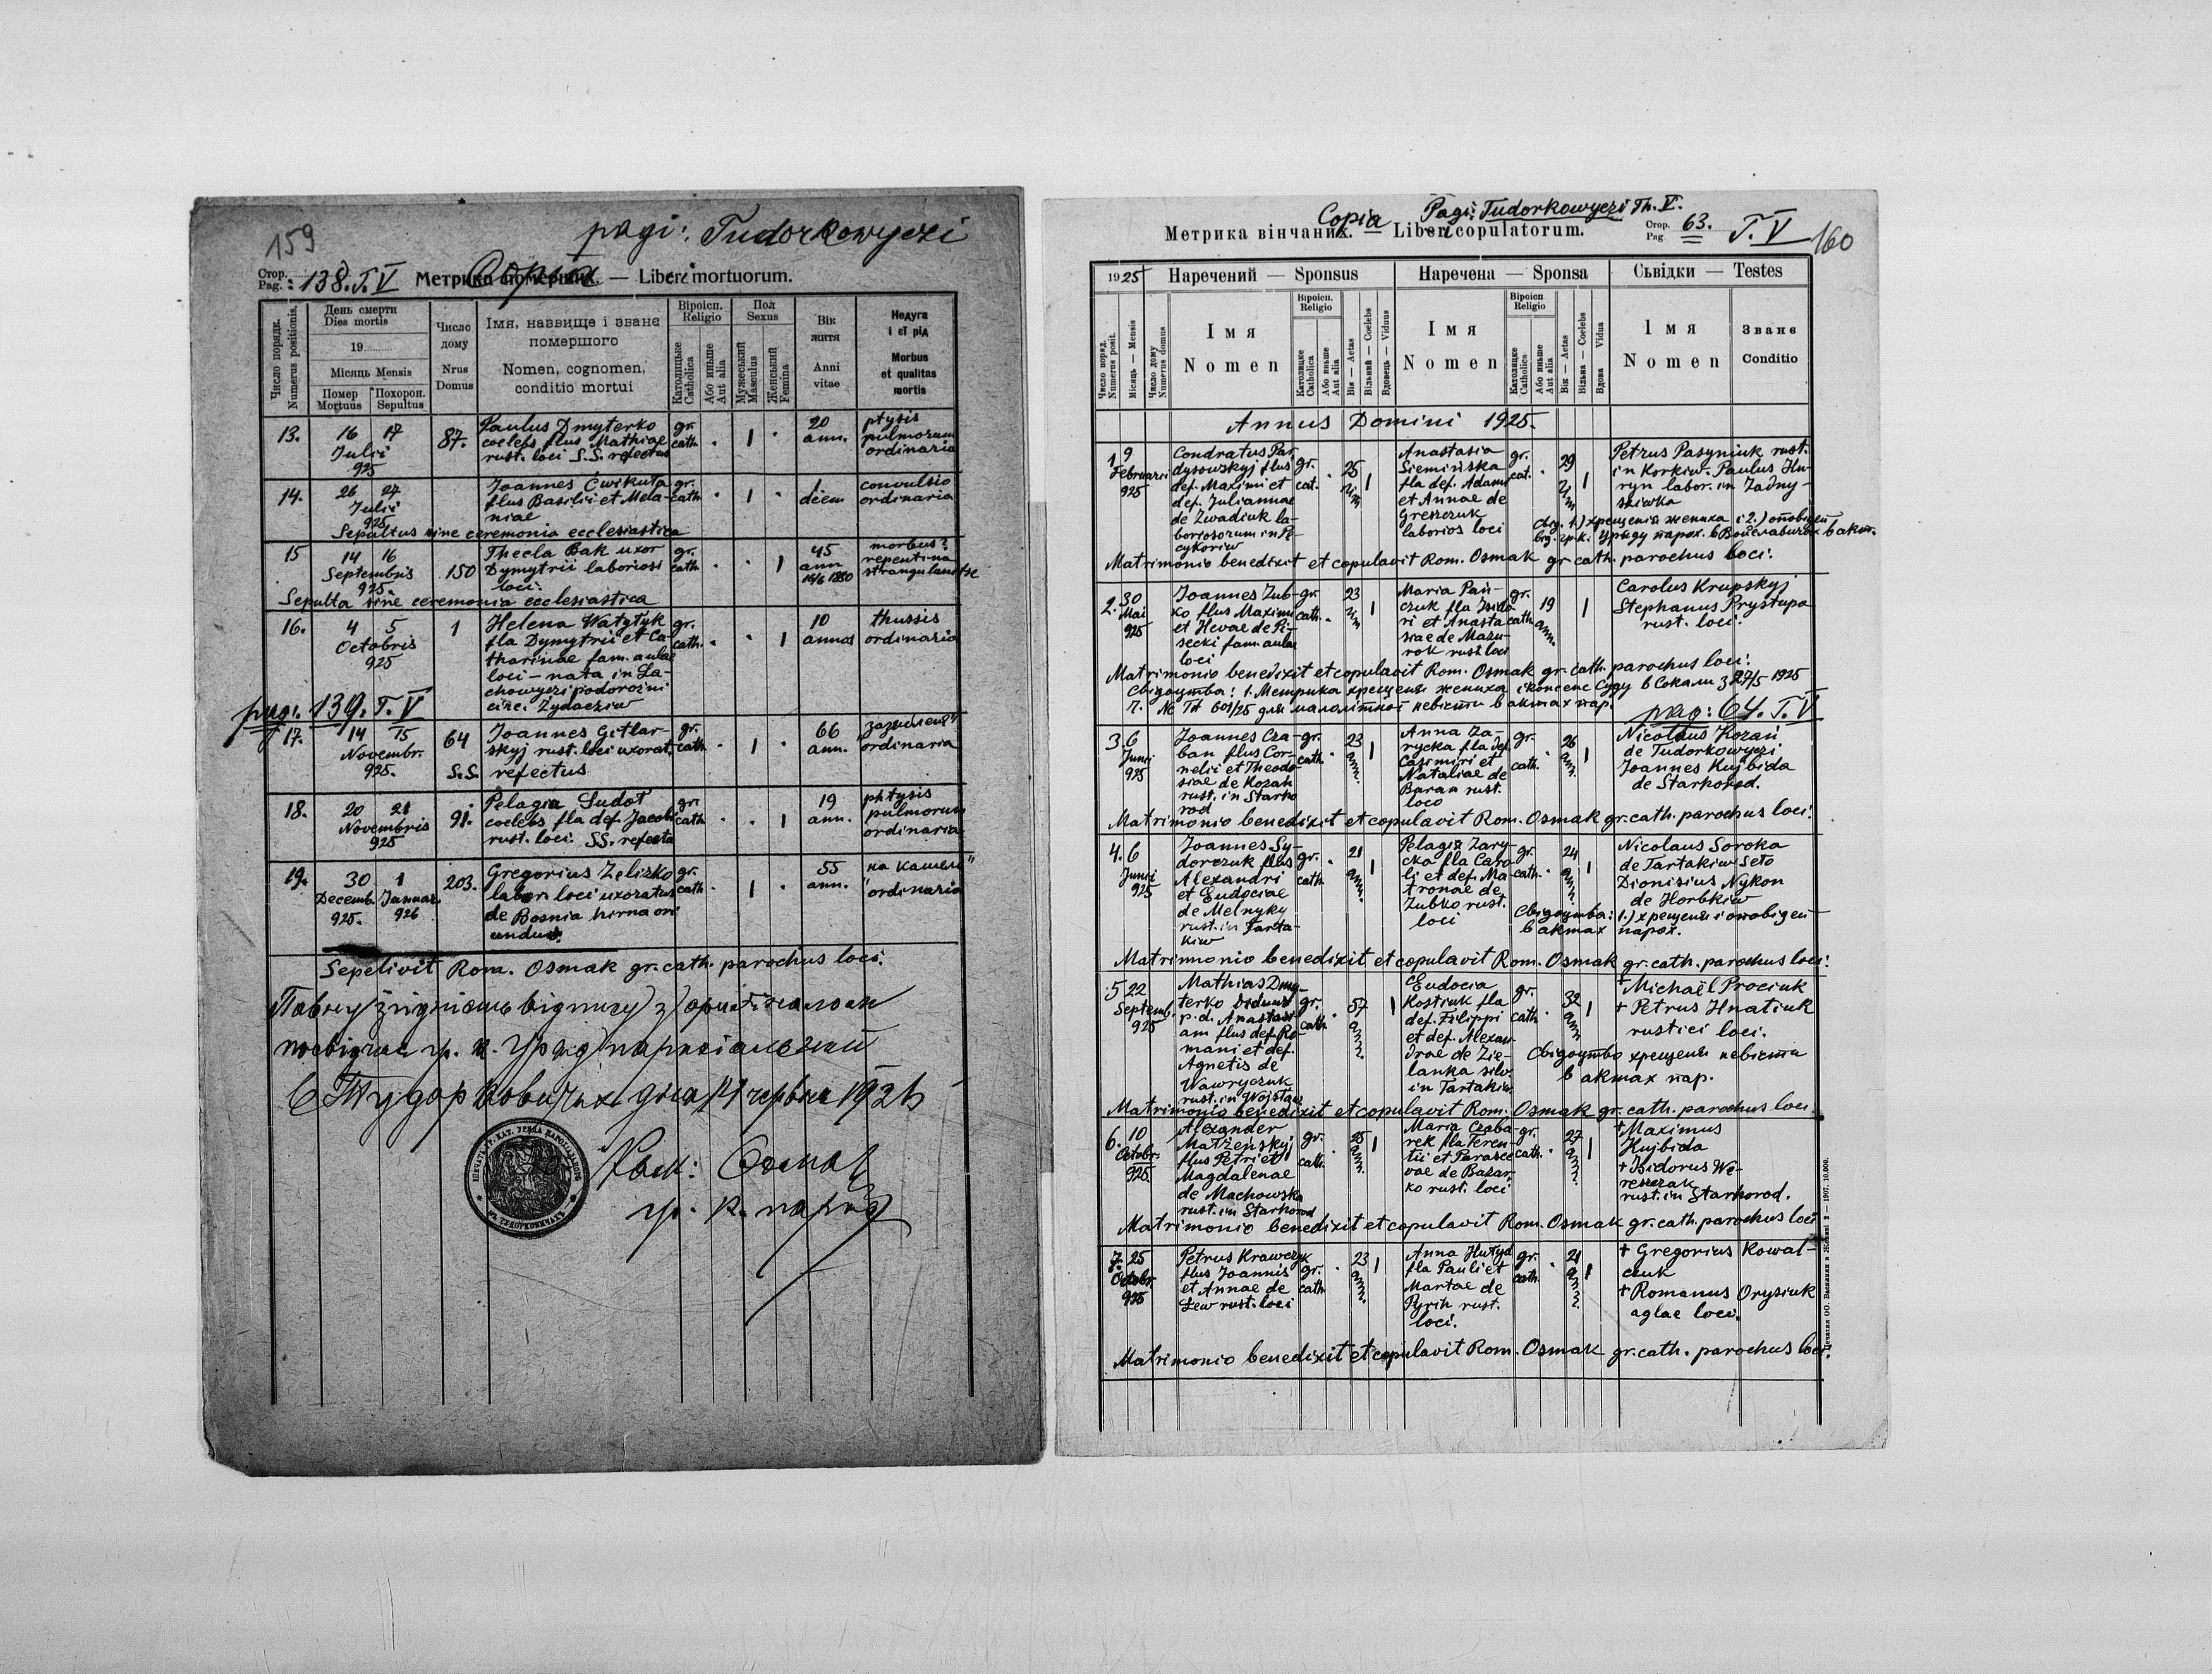 159
pagi: Tudorkowyczi
Стор.
Pag. : 138. T. V Метрика помершихъ. — Liberi mortuorum.
Copia
Число порядк.
Numerus positionis.
День смерти
Dies mortis
19
Місяць Mensis
Помер
Mortuus
Похорон.
Sepultus
Число
дому
Nrus
Domus
Імя, наввище і званє
помершого
Nomen, cognomen,
conditio mortui
Віроісп.
Religio
Католицьке
Catholica
Або иньше
Aut alia
Пол
Sexus
Мужеський
Masculus
Женський
Femina
Вік
житя
Anni
vitae
Недуга
і єї рід
Morbus
et qualitas
mortis
13. 16 17 Julii 925 87.
Paulus Dmyterko
coelebs flus Mathiae
rust. loci S.S. refectus
gr. cath. 1 20 ann.
ptysis
pulmorum
ordinaria
14. 26 27 Julii 925
Joannes Ćwikuła
flus Basilii et Mela-
niae
gr. cath. 1 1 diem
convulsio
ordinaria
Sepultus sine ceremonia ecclesiastica
15 14 16 Septembris 925. 150
Thecla Bak uxor
Dymytrii laboriosi
loci.
gr. cath. 1 45 ann 15/6 1880
morbus?
repentina
Sepulta sine ceremonia ecclesiastica
16. 4 5 Octobris 925 1
Helena Watytyk
fla Dymytrii et Ca-
tharinae fam. aulae
loci – nata in La-
chowyczi podorożni
circ. Żydacziw
gr. cath. 1 10 annos
thussis
ordinaria
pag: 139. T. V
17. 14 15 Novembr. 925. 64
Joannes Gitlar-
skyj rust. loci uxorat.
S.S. refectus
gr. cath. 1 66 ann.
ordinaria
18. 20 21 Novembris 925 91.
Pelagia Sudot
coelebs fla def. Jacobi
rust. loci. SS. refecta
gr. cath 1 19 ann.
phtysis
pulmorum
ordinaria
19. 30 Decemb. 925. 1 Januar. 926 203.
Gregorius Zelisko
labor. loci uxoratus
de Bosnia hirna ori
undus.
gr. cath. 1 55 ann.
на кашель"
ordinaria
Sepelivit Rom. Osmak gr. cath. parochus loci.
Повну згідність відпису з оригіналом
посвідчає гр. к. Уряд парохіальний
В Тудорковичах дня 14 червня 1926
Ром: Осмак
гр. к. парох
Copia Pagi: Tudorkowyczi Th. V.
Метрика вінчаних. — Liberi copulatorum.
Стор.
Pag 63. T. V
160
1925
Наречений — Sponsus
Наречена — Sponsa
Сьвідки — Testes
Число поряд.
Numerus posit.
Місяць — Mensis
Число дому
Numerus domus
Імя
Nomen
Віроісп.
Religio
Католицке
Catholica
Або иньше
Aut alia
Вік — Aetas
Вільний — Coelebs
Вдовець — Viduus
Імя
Nomen
Віроісп
Religio
Католицке
Catholica
Або иньше
Aut alia
Вік — Aetas
Вільна — Coelebs
Вдова Vidua
Імя
Nomen
Званє
Conditio
Annus Domini 1925.
1. 9 Februarii 925
Condratus Par-
dysowskyj flus
def. Maximi et
def. Juliannae
de Zwadiuk la-
boriosorum in Pe-
cykoriw
gr. cat. 25 1
Anastasia
Siemińska
fla def. Adami
et Annae de
Greszczuk
laborios loci
gr. cat. 29 1
Petrus Pasyniuk rust.
in Korkiw. Paulus Hu-
ryn labor. in Zadny-
sziwka
Свід. 1.) хрещеній жениха і 2.) оповідей
від. гр. к. Уряду парох. в Войславичах в акт.
Matrimonio benedixit et copulavit Rom. Osmak gr cath. parochus loci.
2. 30 Mai 925
Joannes Zub-
ko flus Maximi
et Hevae de Pi-
secki fam. aulae
loci
gr. cath. 23 1
Maria Pań-
czuk fla Isido
ri et Anasta
siae de Mazu-
rok rust. loci
gr. cath. 19 ann. 1
Carolus Krupskyj
Stephanus Prystupa
rust. loci.
Matrimonio benedixit et copulavit Rom. Osmak gr. cath. parochus loci.
Свідоцтва: 1. Метрика хрещеня жениха і консенс Суду в Сокали з 27/5 1925
pag: 64. T. V
3. 6 Junii 925
Joannes Cza-
ban flus Cor-
nelii et Theodo
siae de Kozak
rust. in Starho
rod
gr. cath. 23 ann. 1
Anna Za-
rycka fla def.
Casimiri et
Nataliae de
Baran rust.
loco
gr. cath. 26 ann. 1
Nicolaus Kozań
de Tudorkowyczi
Joannes Kujbida
de Starhorod.
Matrimonio benedixit et copulavit Rom. Osmak gr. cath. parochus loci.
4. 6 Junii 925
Joannes Sy-
dorczuk flus
Alexandri
et Eudociae
de Melnyky
rust. in Tarta-
kiw
gr. cath. 21 ann. 1
Pelagia Zary-
cka fla Caro
li et def. Ma
tronae de
Zubko rust.
loci
gr. cath. 24 ann. 1
Nicolaus Soroka
de Tartakiw seło
Dionisius Nykon
de Horbkiw
Свідоцтва: 1.) хрещеня і оповідей
в актах парох.
Matrimonio benedixit et copulavit Rom. Osmak gr. cath. parochus loci.
5 22 Septemb. 925
Mathias Dmy-
terko viduus
p. d. Anastasi
am flus def. Ro
mani et def.
Agnetis de
Wawryczuk
rust. in Wojsław
gr. cath. 57 ann. 1
Eudocia
Kostiuk fla
def. Filippi
et def. Alexan
drae de Zie-
lanka silv.
in Tartakiw
gr. cath. 32 ann 1
+ Michaël Prociuk
+ Petrus Hnatiuk
rustici loci.
Свідоцтво хрещеня невісти
в актах пар.
Matrimonio benedixit et copulavit Rom. Osmak gr. cath. parochus loci
6. 10 Octobr. 925.
Alexander
Matżeńskyj
flus Petri et
Magdalenae
de Machowska
rust. in Starhorod
gr. cath. 25 ann. 1
Maria Czaba-
rek fla Teren-
tii et Parasce
vae de Bazar-
ko rust. loci
gr. cath. 27 ann. 1
+ Maximus
Kujbida
+ Isidorus We-
reszczak
rust. in Starhorod.
Matrimonio benedixit et copulavit Rom. Osmak gr. cath. parochus loci
7. 25 Octobr. 925
Petrus Krawczyk
flus Joannis
et Annae de
Lew rust. loci
gr. cath. 23 ann. 1
Anna Hułyd
fla Pauli et
Martae de
Pyrih rust.
loci.
gr. cath. 21 ann. 1
+ Gregorius Kowal-
czuk
+ Romanus Orysiuk
aglae loci.
Matrimonio benedixit et copulavit Rom. Osmak gr. cath. parochus loci.
Печатня ОО. Василиан в Жовкві — 1907. 10.000.